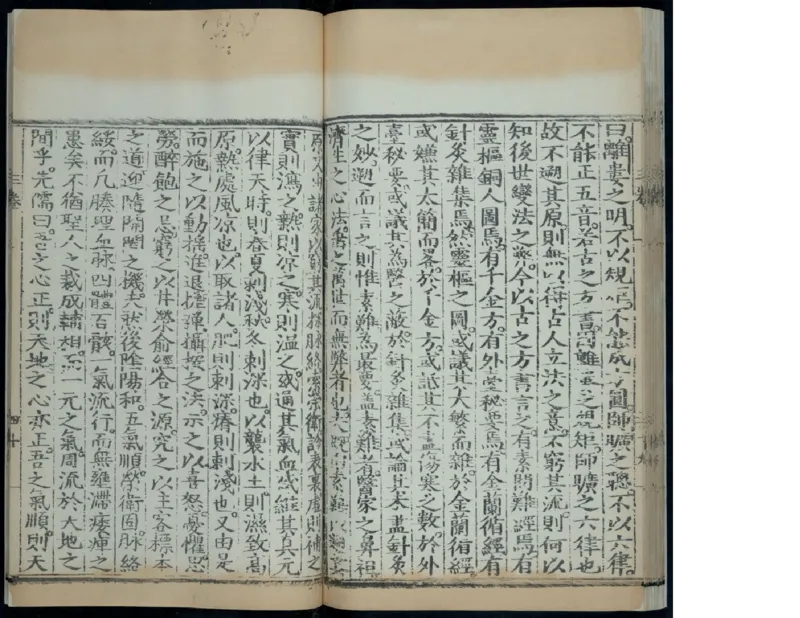 曰離婁之明不以規不能成方圓師曠之聰不以六律
不能正五音若古之方書離之規矩師曠之六律也
故不遡其原則無以得古人立法之意不窮其流則何以
知後世變法之弊今以古之方書言之有素問難經焉有
靈樞銅人圖焉有千金方有外臺秘要焉有金蘭循經有
針灸雜集焉然靈樞之圖或議其太繁而雜於金蘭循經
或嫌其太簡而畧於千金方或詆其不盡傷寒之數於外
臺秘要或議其為醫之蔽於針灸雜集或論其未盡針灸
之妙遡而言之則惟素難為最要盖素難者醫家之鼻祖
濟生之心法垂之萬世而無弊者也
諸家以窮其流探脉絡索榮衛診表裏虛則補之
實則瀉之熱則凉之寒則温之或通其氣血或維其真元
以律天時則春夏刺淺秋冬刺深也以襲水土則濕致高
原熱處風凉也以取諸人肥則刺深瘠則刺淺也又由是
而施之以動揺進退搓彈攝按之法示之以喜怒憂懼思
勞醉飽之忌窮之以井榮俞經合之源究之以主客標本
之道迎隨開闔之機夫然後陰陽和五氣順榮衛固脉絡
綏而凡腠理血脉四體百骸一氣流行而無壅滯痿痺之
患矣不猶聖人之裁成輔相而一元之氣周流於天地之
間乎先儒曰吾之心正則天地之心亦正吾之氣順則天
三卷
四十